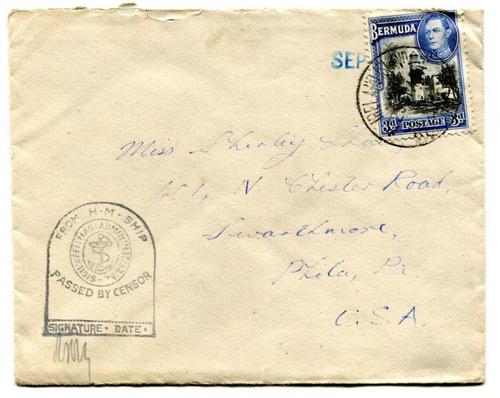 SEP
BERMUDA
IRELAND
3d POSTAGE 3d
Miss Shirley
N. Chester Road,
Swarthmore,
Phila, Pa.
U.S.A.
FROM H·M·SHIP
PASSED BY CENSOR
SIGNATURE· DATE·